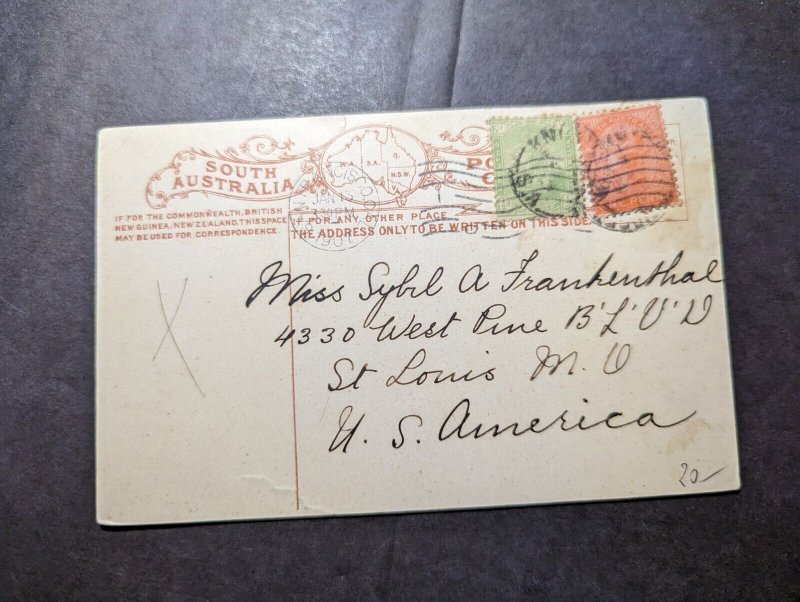 SOUTH
AUSTRALIA
W.A.
S.A.
Q.
N.S.W.
PO
C
IF FOR THE COMMONWEALTH, BRITISH
NEW GUINEA / NEW ZEALAND, THIS SPACE
MAY BE USED FOR CORRESPONDENCE.
IF FOR ANY OTHER PLACE
THE ADDRESS ONLY TO BE WRITTEN ON THIS SIDE
JAN
330 PM
Miss Sybil A Frankenthal
4330 West Pine B'L'V'D
St Louis M.O
U.S. America
20-